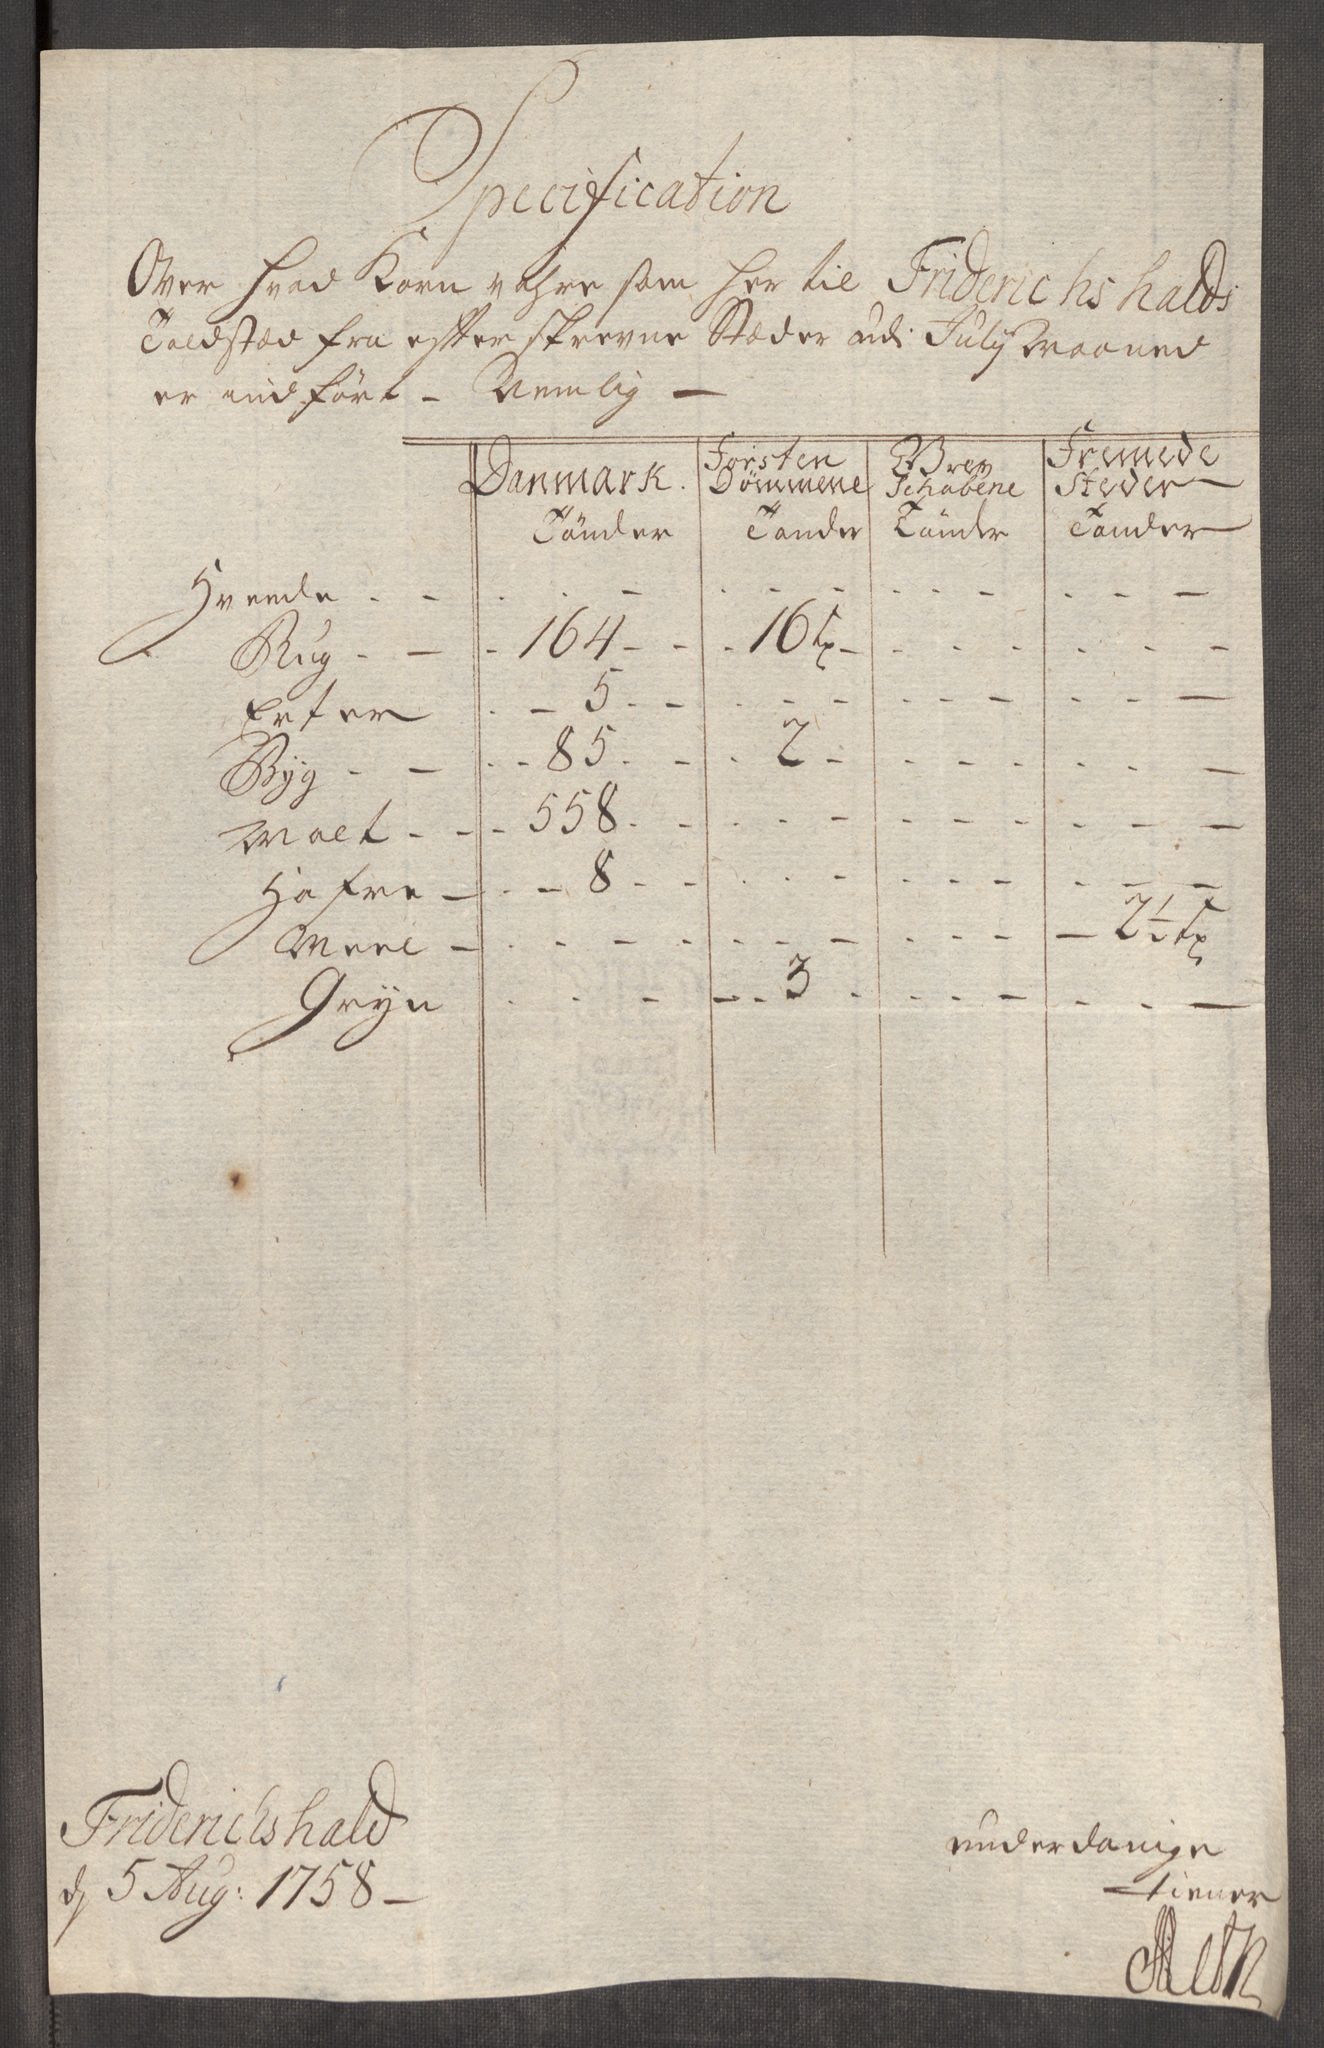 Specification
Over hvad Korn vahre som her til Friderichshalds
Toldstæd fra efterskrevne Stæder udi July Maaned
er indført - Nemlig -
Danmark. Førsten Dømmene Grev Schabene Fremede Steder
Tönder Tönder Tönder Tönder
Hveede . - . . - . - - . . - . - -
Rug . - - 164 - - . 16 - . . . . . - -
Erter . - 5 . - . . - - . . - . . -
Byg - - . - 85 . - . 2 - . - - - . . -
Malt . - - 558 . - . . - - . . - . - -
Hafre - . - 8 - - . . - . - - . - -
Meel - . - - - - . . - - . - - - 2½
Gryn . . - - . 3 . . . - . . -
Friderichshald
d 5 Aug: 1758 -
underdanige
tiener